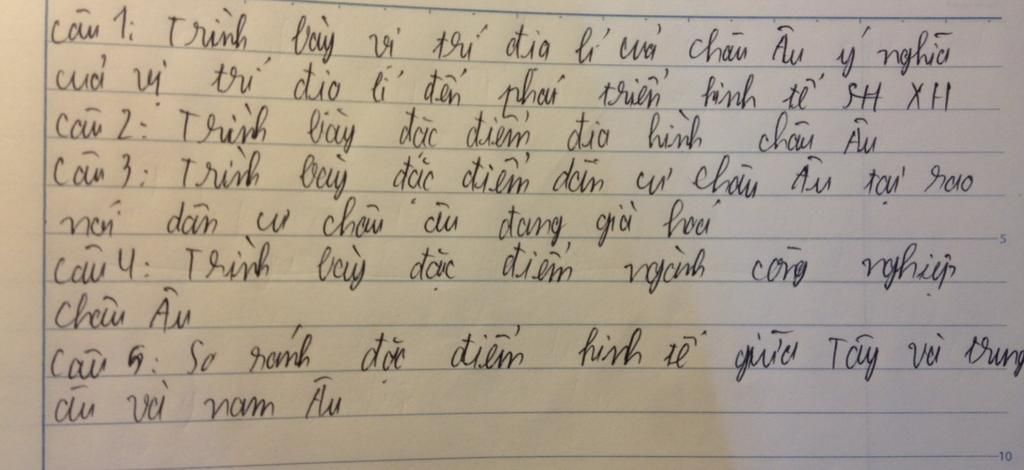 Câu 1: Trình bày vị trí địa lí của châu Âu ý nghĩa
của vị trí địa lí đến phát triển kinh tế SH XH
Câu 2: Trình bày đặc điểm địa hình châu Âu
Câu 3: Trình bày đặc điểm dân cư châu Âu tại sao
nói dân cư châu âu đang già hoá
Câu 4: Trình bày đặc điểm ngành công nghiệp
Châu Âu
Câu 5: So sánh đặc điểm kinh tế giữa Tây và trung
âu và nam Âu
5
10